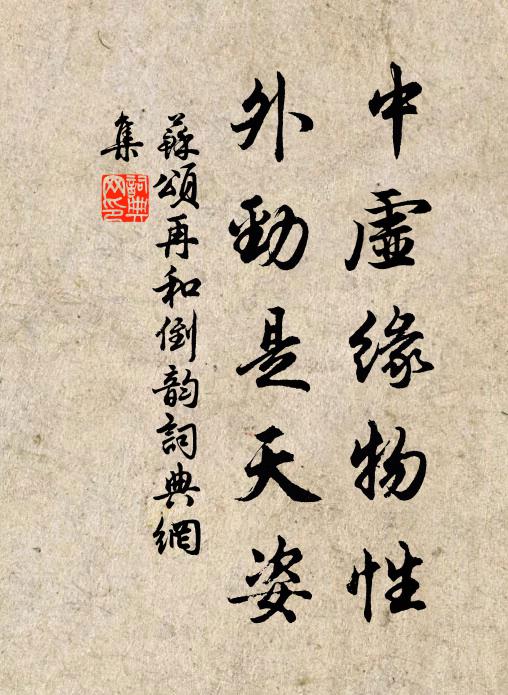 中虛緣物性
外勁是天姿
蘇頌再和倒韵詞典網
集
詞典网印